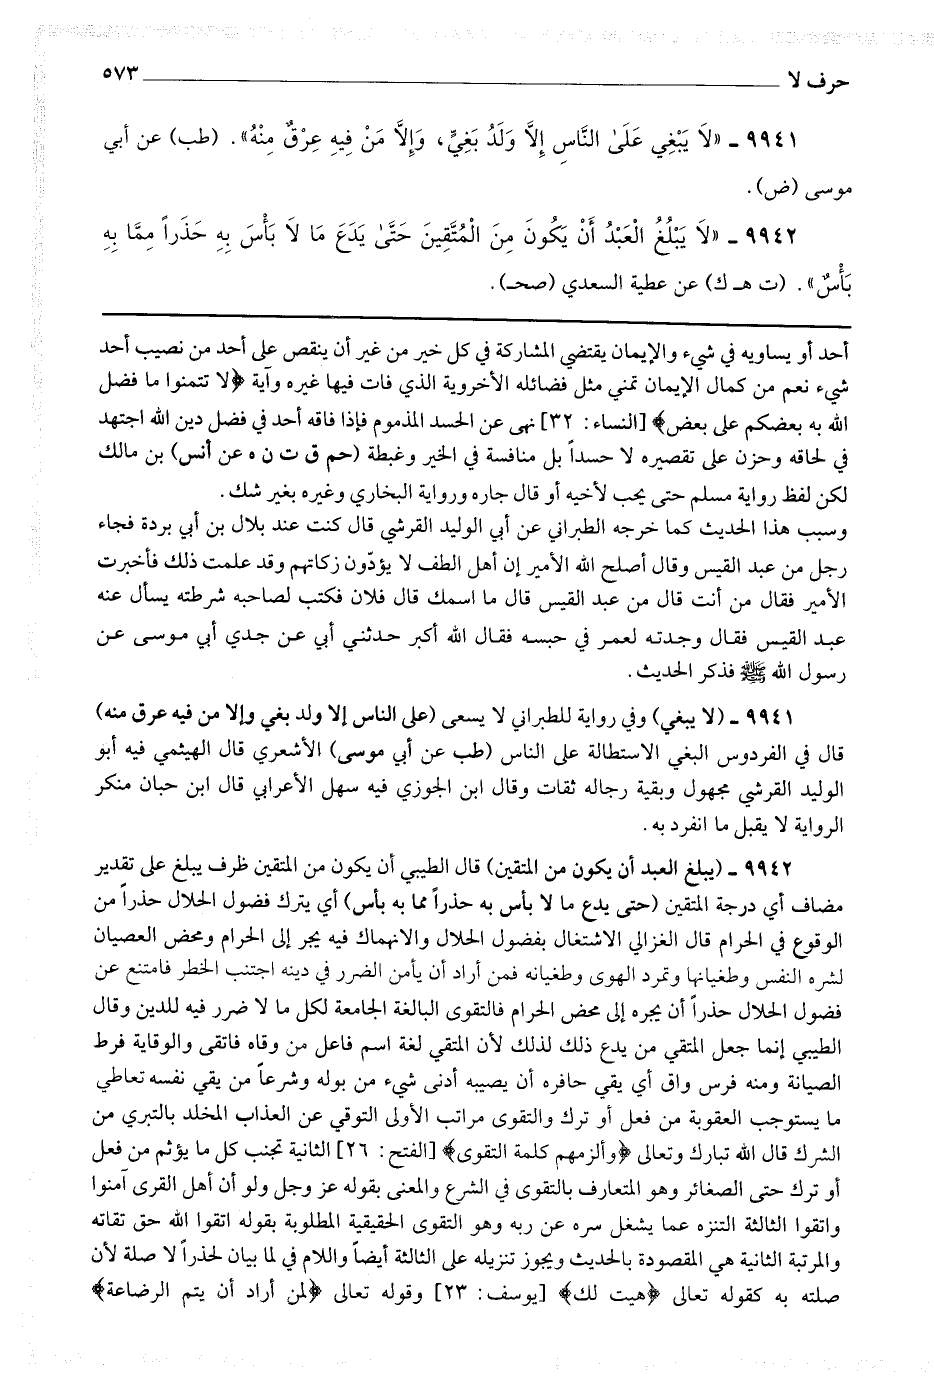 حرف لا ٥٧٣
٩٩٤١ ـ «لَا يَبْغِي عَلَىٰ النَّاسِ إِلَّا وَلَدُ بَغِيٍّ، وَإِلَّا مَنْ فِيهِ عِرْقٌ مِنْهُ». (طب) عن أبي
موسى (ض).
٩٩٤٢ ـ «لَا يَبْلُغُ الْعَبْدُ أَنْ يَكُونَ مِنَ الْمُتَّقِينَ حَتَّىٰ يَدَعَ مَا لَا بَأْسَ بِهِ حَذَراً مِمَّا بِهِ
بَأْسٌ». (ت هـ ك) عن عطية السعدي (صحـ).
أحد أو يساويه في شيء والإيمان يقتضي المشاركة في كل خير من غير أن ينقص على أحد من نصيب أحد
شيء نعم من كمال الإيمان تمني مثل فضائله الأخروية الذي فات فيها غيره وآية ﴿لا تتمنوا ما فضل
الله به بعضكم على بعض﴾ [النساء: ٣٢] نهى عن الحسد المذموم فإذا فاقه أحد في فضل دين الله اجتهد
في لحاقه وحزن على تقصيره لا حسداً بل منافسة في الخير وغبطة (حم ق ت ن ه عن أنس) بن مالك
لكن لفظ رواية مسلم حتى يحب لأخيه أو قال جاره ورواية البخاري وغيره بغير شك.
وسبب هذا الحديث كما خرجه الطبراني عن أبي الوليد القرشي قال كنت عند بلال بن أبي بردة فجاء
رجل من عبد القيس وقال أصلح الله الأمير إن أهل الطف لا يؤدّون زكاتهم وقد علمت ذلك فأخبرت
الأمير فقال من أنت قال من عبد القيس قال ما اسمك قال فلان فكتب لصاحبه شرطته يسأل عنه
عبد القيس فقال وجدته لعمر في حبسه فقال الله أكبر حدثني أبي عن جدي أبي موسى عن
رسول الله ﷺ فذكر الحديث.
٩٩٤١ ـ (لا يبغي) وفي رواية للطبراني لا يسعى (على الناس إلا ولد بغي وإلا من فيه عرق منه)
قال في الفردوس البغي الاستطالة على الناس (طب عن أبي موسى) الأشعري قال الهيثمي فيه أبو
الوليد القرشي مجهول وبقية رجاله ثقات وقال ابن الجوزي فيه سهل الأعرابي قال ابن حبان منكر
الرواية لا يقبل ما انفرد به.
٩٩٤٢ ـ (يبلغ العبد أن يكون من المتقين) قال الطيبي أن يكون من المتقين ظرف يبلغ على تقدير
مضاف أي درجة المتقين (حتى يدع ما لا بأس به حذراً مما به بأس) أي يترك فضول الحلال حذراً من
الوقوع في الحرام قال الغزالي الاشتغال بفضول الحلال والانهماك فيه يجر إلى الحرام ومحض العصيان
لشره النفس وطغيانها وتمرد الهوى وطغيانه فمن أراد أن يأمن الضرر في دينه اجتنب الخطر فامتنع عن
فضول الحلال حذراً أن يجره إلى محض الحرام فالتقوى البالغة الجامعة لكل ما لا ضرر فيه للدين وقال
الطيبي إنما جعل المتقي من يدع ذلك لذلك لأن المتقي لغة اسم فاعل من وقاه فاتقى والوقاية فرط
الصيانة ومنه فرس واق أي يقي حافره أن يصيبه أدنى شيء من بوله وشرعاً من يقي نفسه تعاطي
ما يستوجب العقوبة من فعل أو ترك والتقوى مراتب الأولى التوقي عن العذاب المخلد بالتبري من
الشرك قال الله تبارك وتعالى ﴿وألزمهم كلمة التقوى﴾ [الفتح: ٢٦] الثانية تجنب كل ما يؤثم من فعل
أو ترك حتى الصغائر وهو المتعارف بالتقوى في الشرع والمعنى بقوله عز وجل ولو أن أهل القرى آمنوا
واتقوا الثالثة التنزه عما يشغل سره عن ربه وهو التقوى الحقيقية المطلوبة بقوله اتقوا الله حق تقاته
والمرتبة الثانية هي المقصودة بالحديث ويجوز تنزيله على الثالثة أيضاً واللام في لما بيان لحذراً لا صلة لأن
صلته به كقوله تعالى ﴿هيت لك﴾ [يوسف: ٢٣] وقوله تعالى ﴿لمن أراد أن يتم الرضاعة﴾